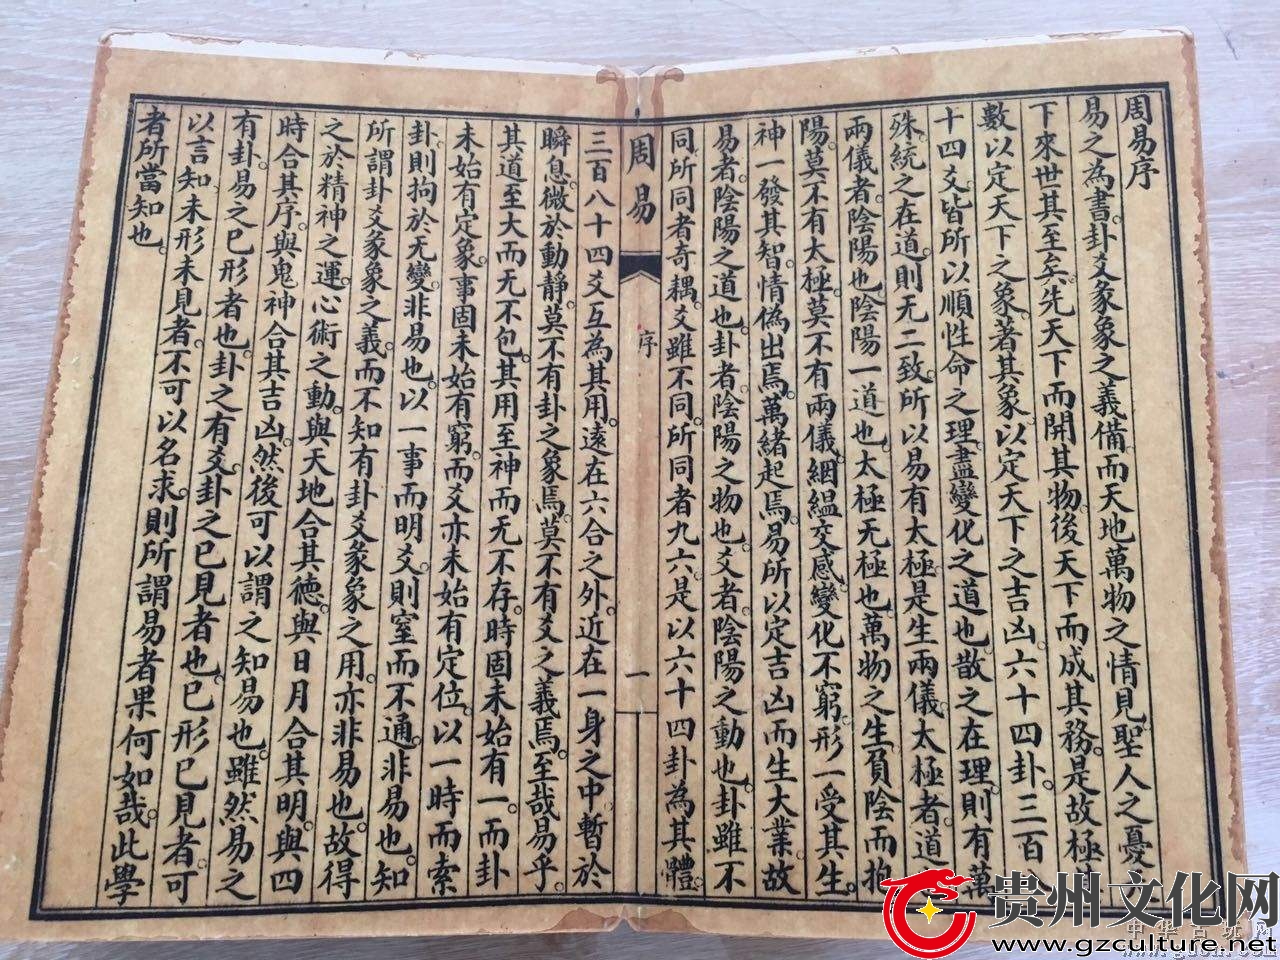 周易序
易之為書卦爻彖象之義備而天地萬物之情見聖人之憂
下來世其至矣先天下而開其物後天下而成其務是故極其
數以定天下之象著其象以定天下之吉凶六十四卦三百
十四爻皆所以順性命之理盡變化之道也散之在理則有萬
殊統之在道則无二致所以易有太極是生兩儀太極者道
兩儀者陰陽也陰陽一道也太極无極也萬物之生負陰而抱
陽莫不有太極莫不有兩儀絪縕交感變化不窮形一受其生
神一發其智情偽出焉萬緒起焉易所以定吉凶而生大業故
易者陰陽之道也卦者陰陽之物也爻者陰陽之動也卦雖不
同所同者奇耦爻雖不同所同者九六是以六十四卦為其體
周易
序
一
三百八十四爻互為其用遠在六合之外近在一身之中暫於
瞬息微於動靜莫不有卦之象焉莫不有爻之義焉至哉易乎
其道至大而无不包其用至神而无不存時固未始有一而卦
未始有定象事固未始有窮而爻亦未始有定位以一時而索
卦則拘於无變非易也以一事而明爻則窒而不通非易也知
所謂卦爻彖象之義而不知有卦爻彖象之用亦非易也故得
之於精神之運心術之動與天地合其德與日月合其明與四
時合其序與鬼神合其吉凶然後可以謂之知易也雖然易之
有卦易之已形者也卦之有爻卦之已見者也已形已見者可
以言知未形未見者不可以名求則所謂易者果何如哉此學
者所當知也
贵州文化网
www.gzculture.net